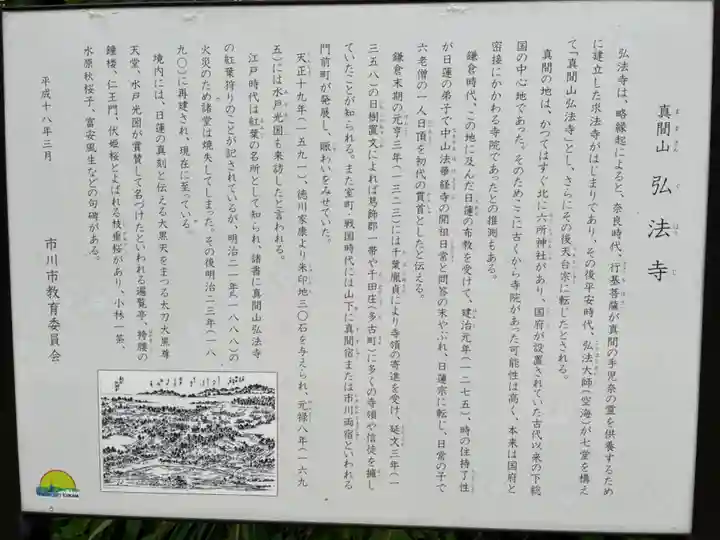 真間山 弘法寺
弘法寺は、略縁起によると、奈良時代、行基菩薩が真間の手児奈の霊を供養するため
に建立した求法寺がはじまりであり、その後平安時代、弘法大師(空海)が七堂を構え
て「真間山弘法寺」とし、さらにその後天台宗に転じたとされる。
真間の地は、かつてはすぐ北に六所神社があり、国府が設置されていた古代以来の下総
国の中心地であった。そのためここに古くから寺院があった可能性は高く、本来は国府と
密接にかかわる寺院であったとの推測もある。
鎌倉時代、この地に及んだ日蓮の布教を受けて、建治元年(一二七五)、時の住持了性
が日蓮の弟子で中山法華経寺の開祖日常と問答の末やぶれ、日蓮宗に転じ、日常の子で
六老僧の一人日頂を初代の貫首としたと伝える。
鎌倉末期の元亨三年(一三二三)には千葉胤貞により寺領の寄進を受け、延文三年(一
三五八)の日樹置文によれば葛飾郡一帯や千田庄(多古町)に多くの寺領や信徒を擁し
ていたことが知られる。また室町・戦国時代には山下に真間宿または市川両宿といわれる
門前町が発展し、賑わいをみせていた。
天正十九年(一五九一)、徳川家康より朱印地三〇石を与えられ、元禄八年(一六九
五)には水戸光圀も来訪したと言われる。
江戸時代は紅葉の名所として知られ、諸書に真間山弘法寺
の紅葉狩りのことが記されているが、明治二一年(一八八八)の
火災のため諸堂は焼失してしまった。その後明治二三年(一八
九〇)に再建され、現在に至っている。
境内には、日蓮の真刻と伝える大黒天をまつる太刀大黒尊
天堂、水戸光圀が賞賛して名づけたといわれる遍覧亭、袴腰の
鐘楼、仁王門、伏姫桜とよばれる枝垂桜があり、小林一茶、
水原秋桜子、富安風生などの句碑がある。
平成十八年三月
市川市教育委員会